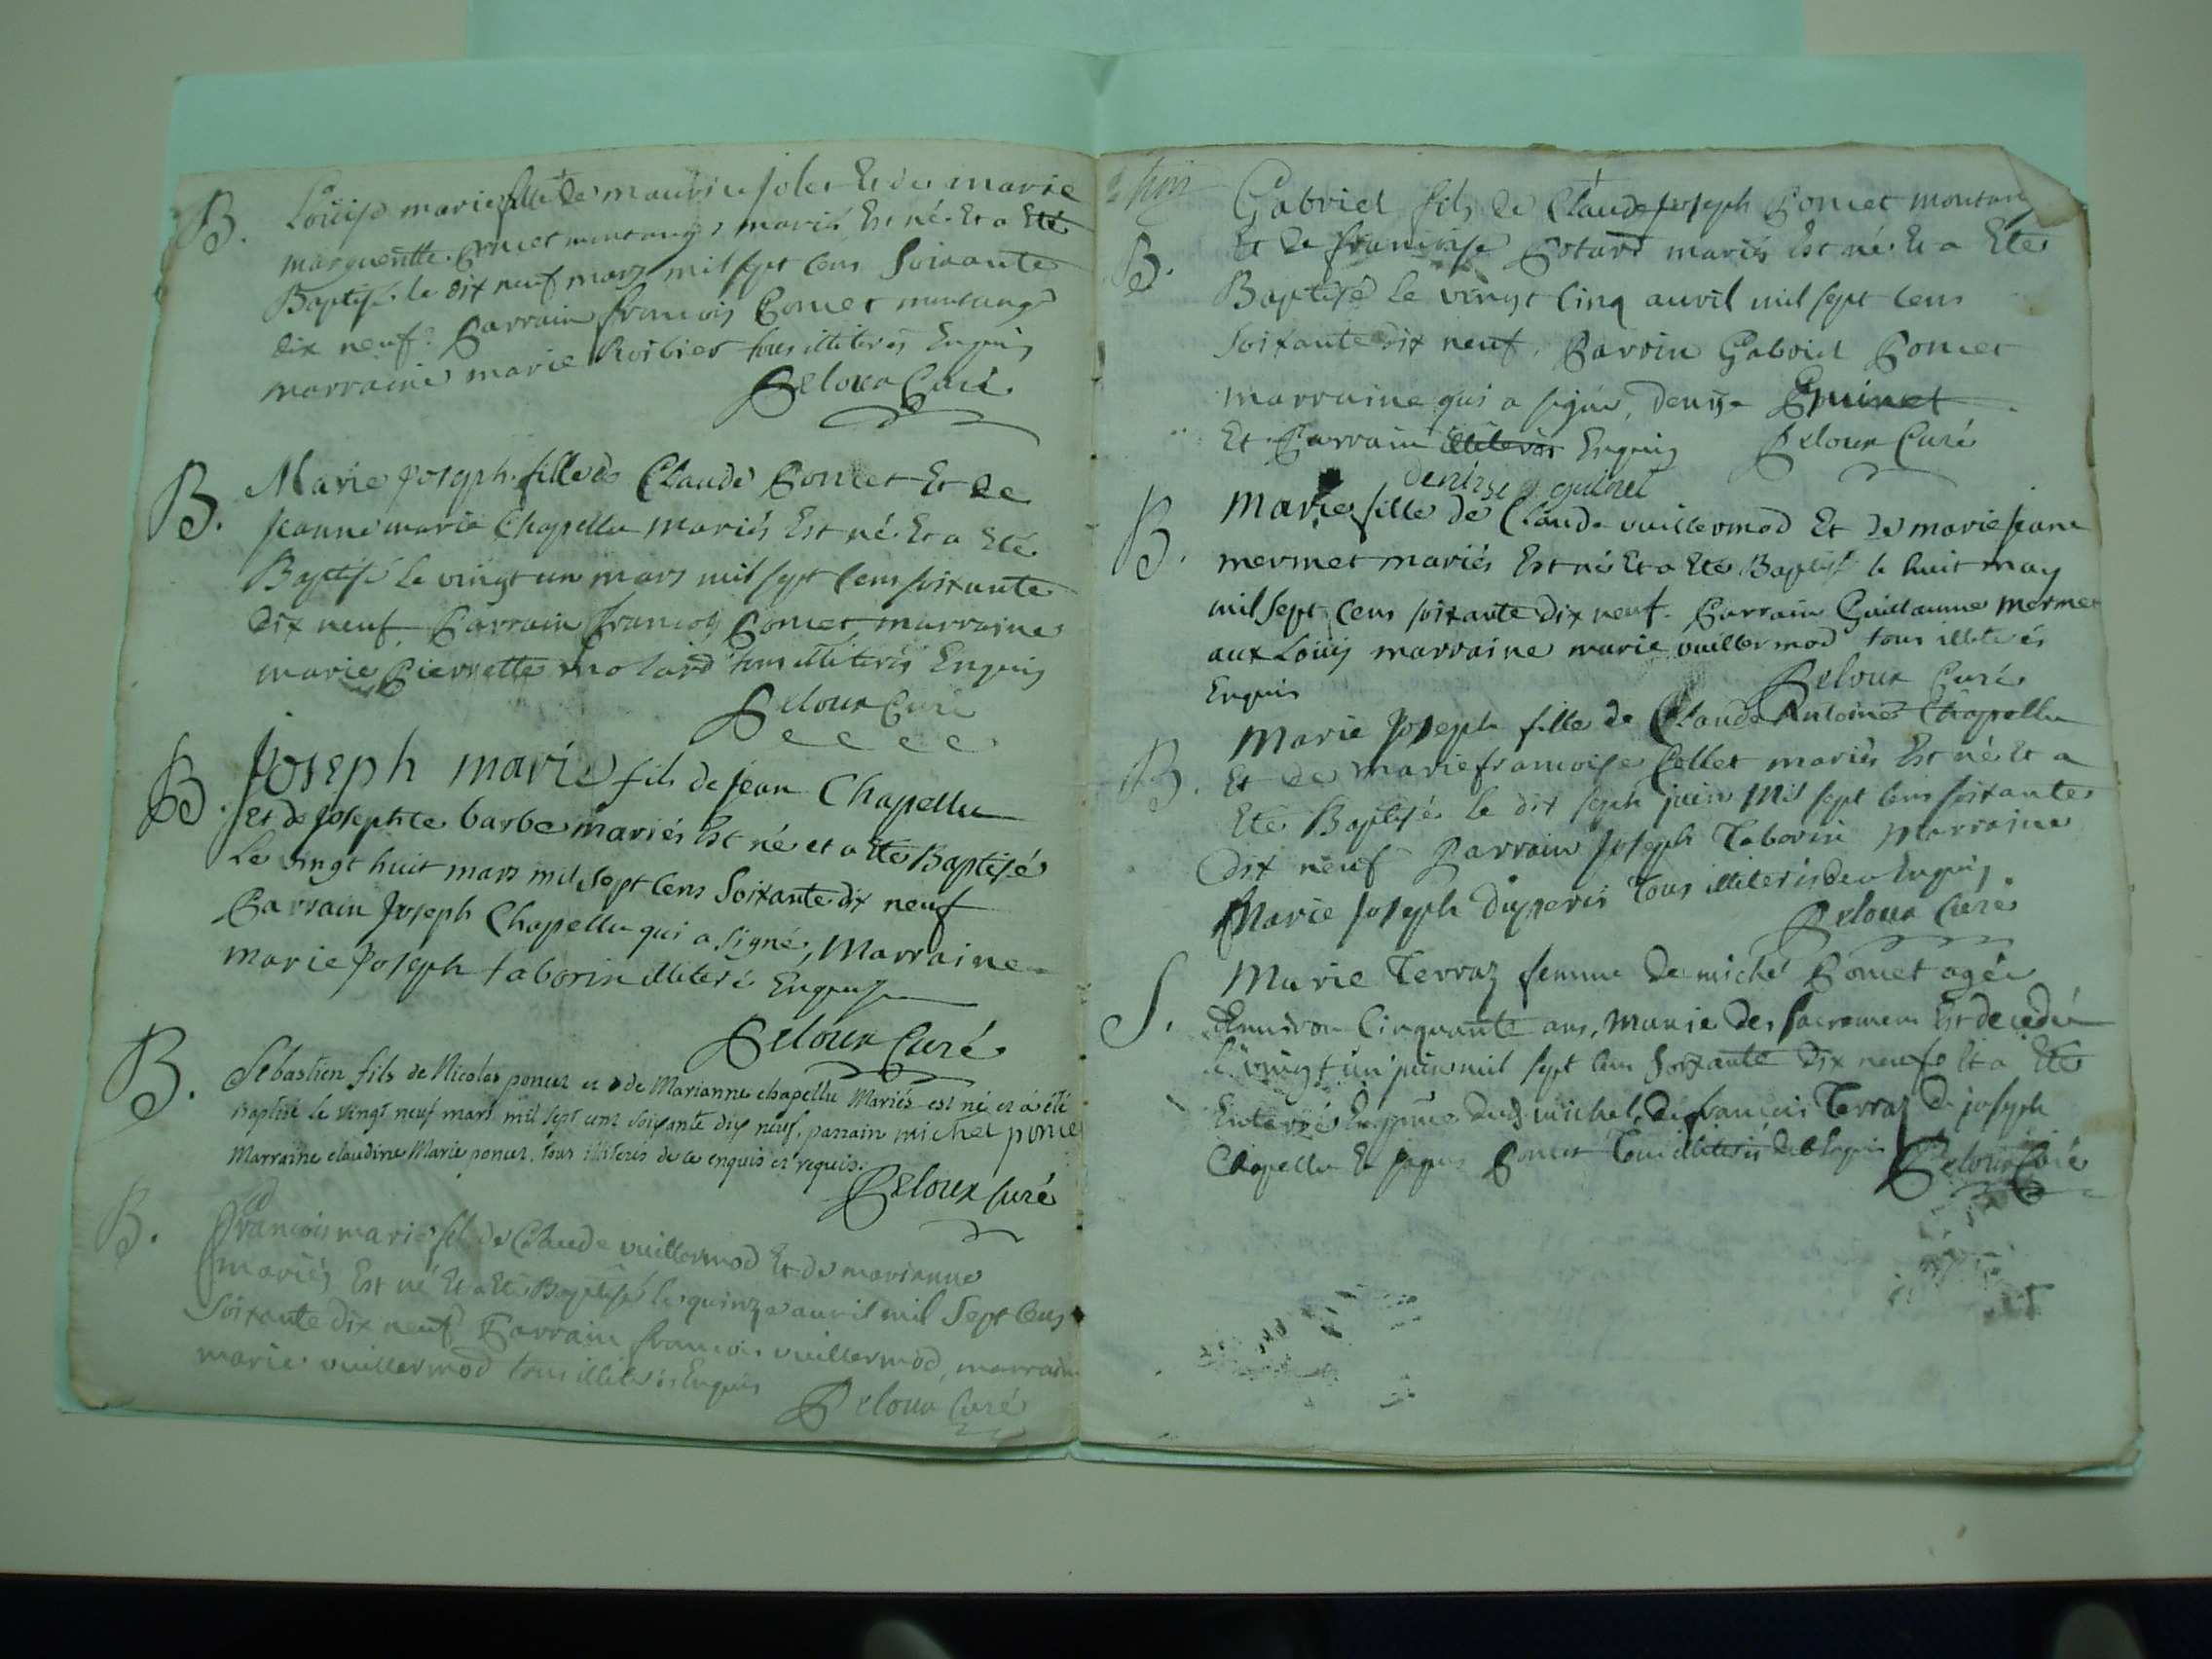 B. Loüise marie fille de maurice joles Et de marie
margueritte Poncet montange mariés Est né Et a Eté
Baptisé le dix neuf mars mil sept Cens Soixante
dix neuf. Parrain francois Poncet montange
marraine marie Roibier tous illiterés Enquis
Peloux Curé
B. Marie joseph fille de Claude Poncet Et de
jeanne marie Chapellu mariés Est né Et a Eté
Baptisé Le vingt un mars mil sept Cens soixante
dix neuf. Parrain francois Poncet marraine
marie Pierrette molard tous illiterés Enquis
Peloux Curé
B. Joseph marie fils de jean Chapellu
Et de josephte barbe mariés Est né et a Eté Baptisé
Le vingt huit mars mil sept Cens Soixante dix neuf
Parrain Joseph Chapellu qui a signé, Marraine
marie Joseph taborin illiteré Enquis
Peloux Curé
B. Sébastien fils de Nicolas poncet et de Marianne chapellu Mariés est né et a été
Baptisé le vingt neuf mars mil sept cent soixante dix neuf, parrain michel poncet
Marraine claudine Marie poncet, tous illiteres de ce enquis et requis.
Peloux curé
B. francois marie fils de Claude vuillermod Et de marianne
mariés Est né Et a Eté Baptisé le quinze auvril mil Sept Cens
Soixante dix neuf Parrain francois vuillermod, marraine
marie vuillermod tous illiterés Enquis
Peloux Curé
Gabriel fils de Claude joseph Poncet montang
B. Et de francoise Rotard mariés Est né Et a Eté
Baptisé Le vingt Cinq auvril mil sept Cens
Soixante dix neuf, Parrin Gabriel Poncet
marraine qui a signé, denise Guinet
Et Parrain illiterés Enquis Peloux Curé
denise guinet
B. Marie fille de Claude vuillermod Et de marie jeane
mermet mariés Est né Et a Eté Baptisé le huit may
mil Sept Cens soixante dix neuf. Parrain Guillaume merme
aux Loüis marraine marie vuillermod tous illiterés
Enquis Peloux Curé
Marie Joseph fille de Claude Antoine Chapellu
B. Et de marie francoise Collet mariés Est né Et a
Eté Baptisé le dix sept juin Mil sept Cens soixante
dix neuf Parrain Joseph Taborin Marraine
Marie Joseph duperis Tous illiterés de ce Enquis
Peloux Curé
S. Marie Terraz femme de michel Poncet agée
denviron Cinquante ans, munie des Sacremens Est decedée
le vingt un juin mil sept Cens soixante dix neuf Et a Eté
Enterrée En présence dud. michel, de francois Terraz de joseph
Chapellu Et Poncet Tous illiterés de ce Enquis Peloux Curé